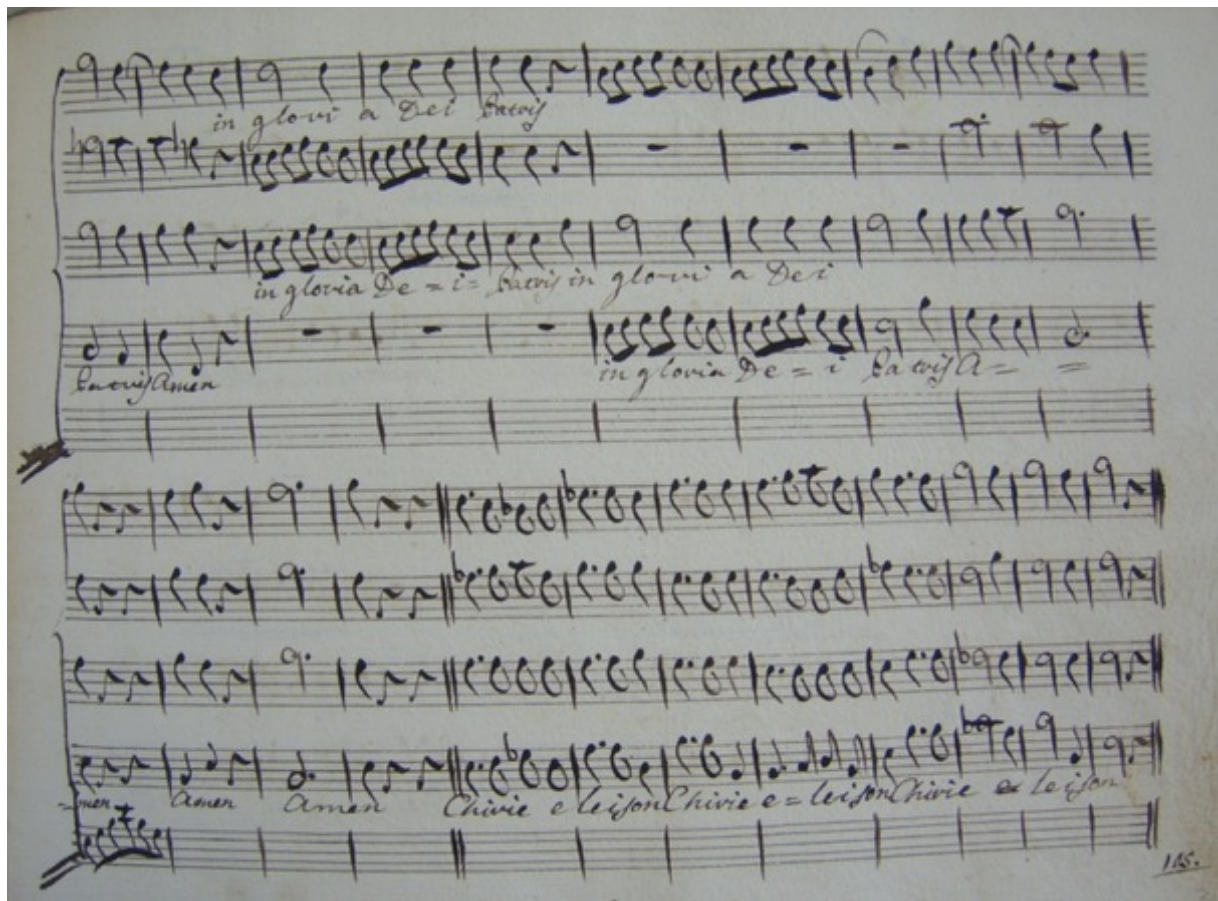 in glori a Dei Patris
in gloria De = i = Patris in glo-ri a Dei
Patris Amen
in gloria De = i Patris A = =
=men Amen Amen Chirie e leison Chirie e=leison Chirie e leison
105.